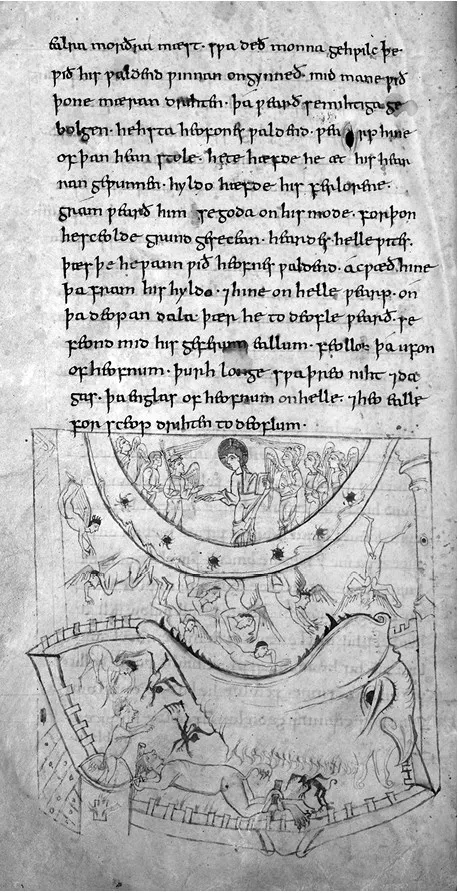 ealra morðra mæst· sƿa deð monna gehƿilc þe
ƿið his ƿaldend ƿinnan ongynneð· mid mane ƿið
þone mæran drihten· þa ƿearð se mihtiga ge
bolgen· hehsta heofones ƿaldend· ƿearp hine
of þan hean stole· hete hæfde he æt his hear
ran geƿunnen· hyldo hæfde his ferlorene·
gram ƿearð him se goda on his mode· forþon
he sceolde grund gesecean· heardes helleƿites·
þæs þe he ƿann ƿið heofnes ƿaldend· acƿæð hine
þa fram his hyldo· ⁊ hine on helle ƿearp· on
þa deopan dala· þær he to deofle ƿearð· se
feond mid his geferum eallum· feollon þa ufon
of heofnum· þurh longe sƿa þreo niht ⁊ da
gas· þa englas of heofnum on helle· ⁊ heo ealle
for sceop drihten to deoflum·